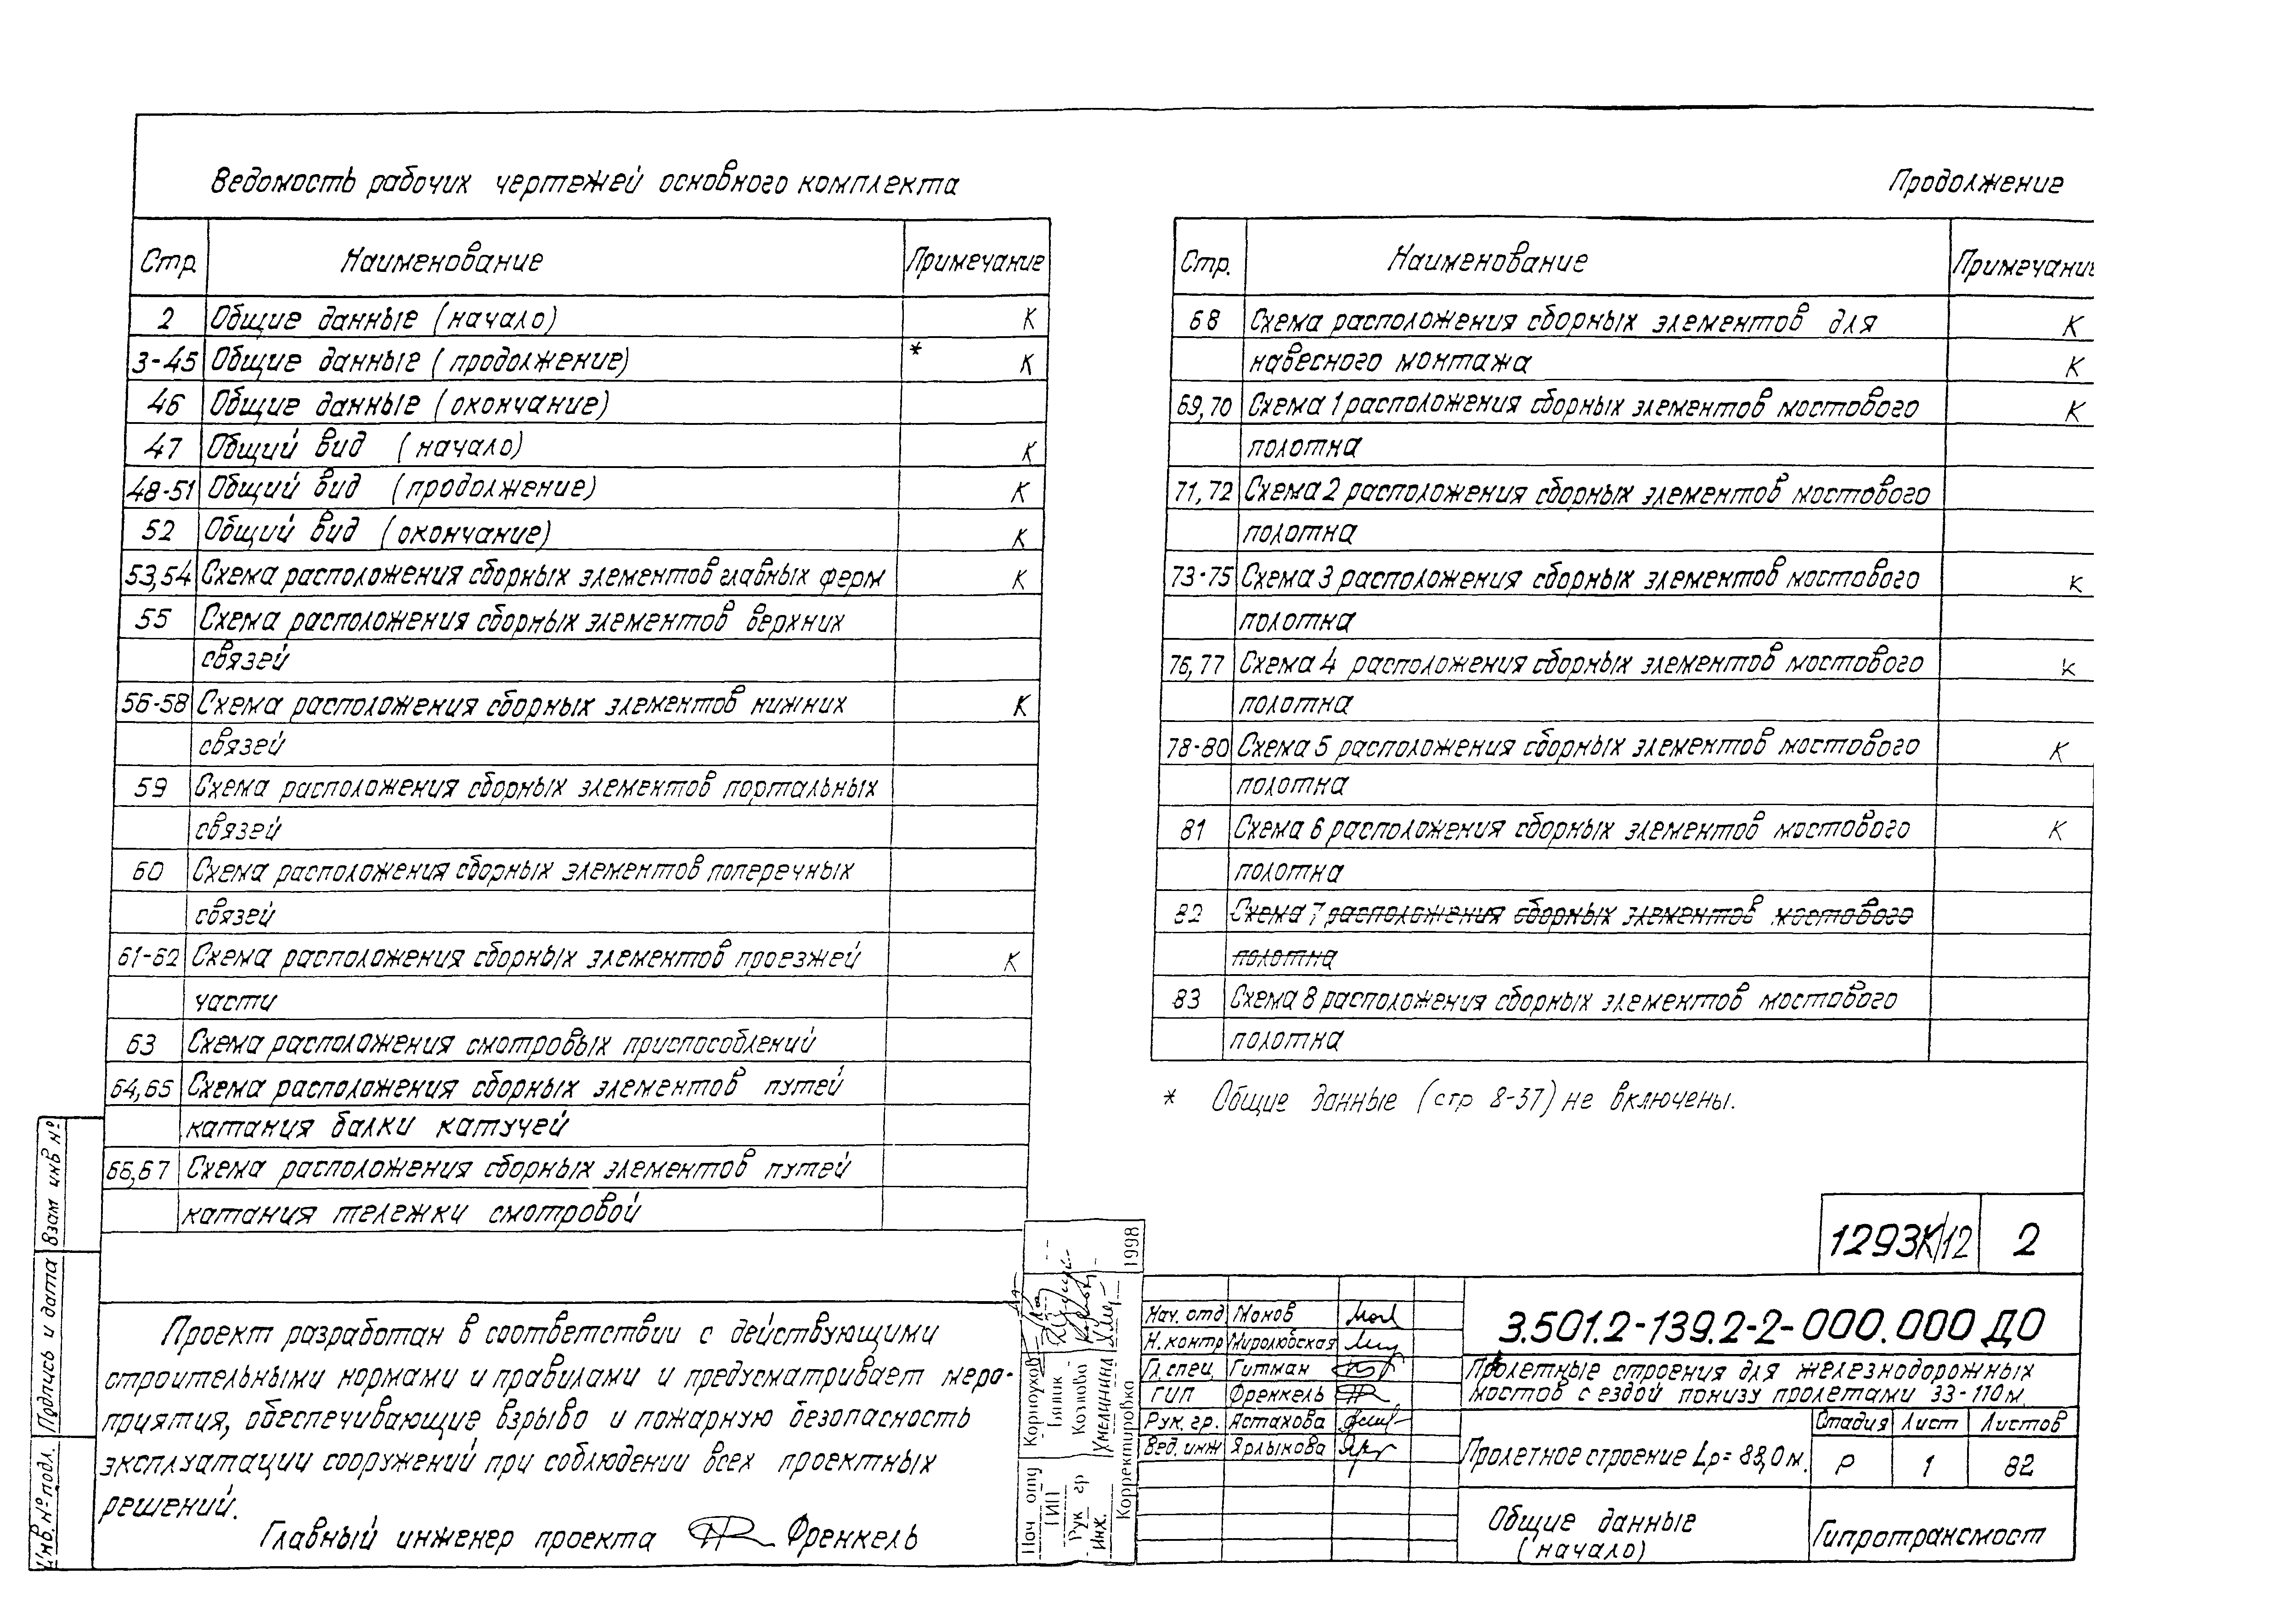 Ведомость рабочих чертежей основного комплекта
Стр. Наименование Примечание
2 Общие данные (начало) К
3-45 Общие данные (продолжение) * К
46 Общие данные (окончание)
47 Общий вид (начало) К
48-51 Общий вид (продолжение) К
52 Общий вид (окончание) К
53,54 Схема расположения сборных элементов главных ферм К
55 Схема расположения сборных элементов верхних
связей
56-58 Схема расположения сборных элементов нижних К
связей
59 Схема расположения сборных элементов портальных
связей
60 Схема расположения сборных элементов поперечных
связей
61-62 Схема расположения сборных элементов проезжей К
части
63 Схема расположения смотровых приспособлений
64,65 Схема расположения сборных элементов путей
катания балки катучей
66,67 Схема расположения сборных элементов путей
катания тележки смотровой
Продолжение
Стр. Наименование Примечание
68 Схема расположения сборных элементов для К
навесного монтажа К
69,70 Схема 1 расположения сборных элементов мостового К
полотна
71,72 Схема 2 расположения сборных элементов мостового
полотна
73-75 Схема 3 расположения сборных элементов мостового К
полотна
76,77 Схема 4 расположения сборных элементов мостового К
полотна
78-80 Схема 5 расположения сборных элементов мостового К
полотна
81 Схема 6 расположения сборных элементов мостового К
полотна
82 Схема 7 расположения сборных элементов мостового
полотна
83 Схема 8 расположения сборных элементов мостового
полотна
* Общие данные (стр 8-37) не включены.
Проект разработан в соответствии с действующими
строительными нормами и правилами и предусматривает меро-
приятия, обеспечивающие взрыво и пожарную безопасность
эксплуатации сооружений при соблюдении всех проектных
решений.
Главный инженер проекта Френкель
Инв. № подл. Подпись и дата Взам инв №
Нач отд Корноухов
ГИП Бинник
Рук гр Козлова
Инж. Умеликина
Корректировка 1998
1293К/12 2
Нач. отд Монов
Н.контр Миролюбская
Гл.спец Гитман
ГИП Френкель
Рук. гр. Астахова
Вед. инж Ярлыкова
3.501.2-139.2-2-000.000 ДО
Пролетные строения для железнодорожных
мостов с ездой понизу пролетами 33-110 м.
Пролетное строение Lр= 88,0 м.
Стадия Лист Листов
Р 1 82
Общие данные
(начало)
Гипротрансмост